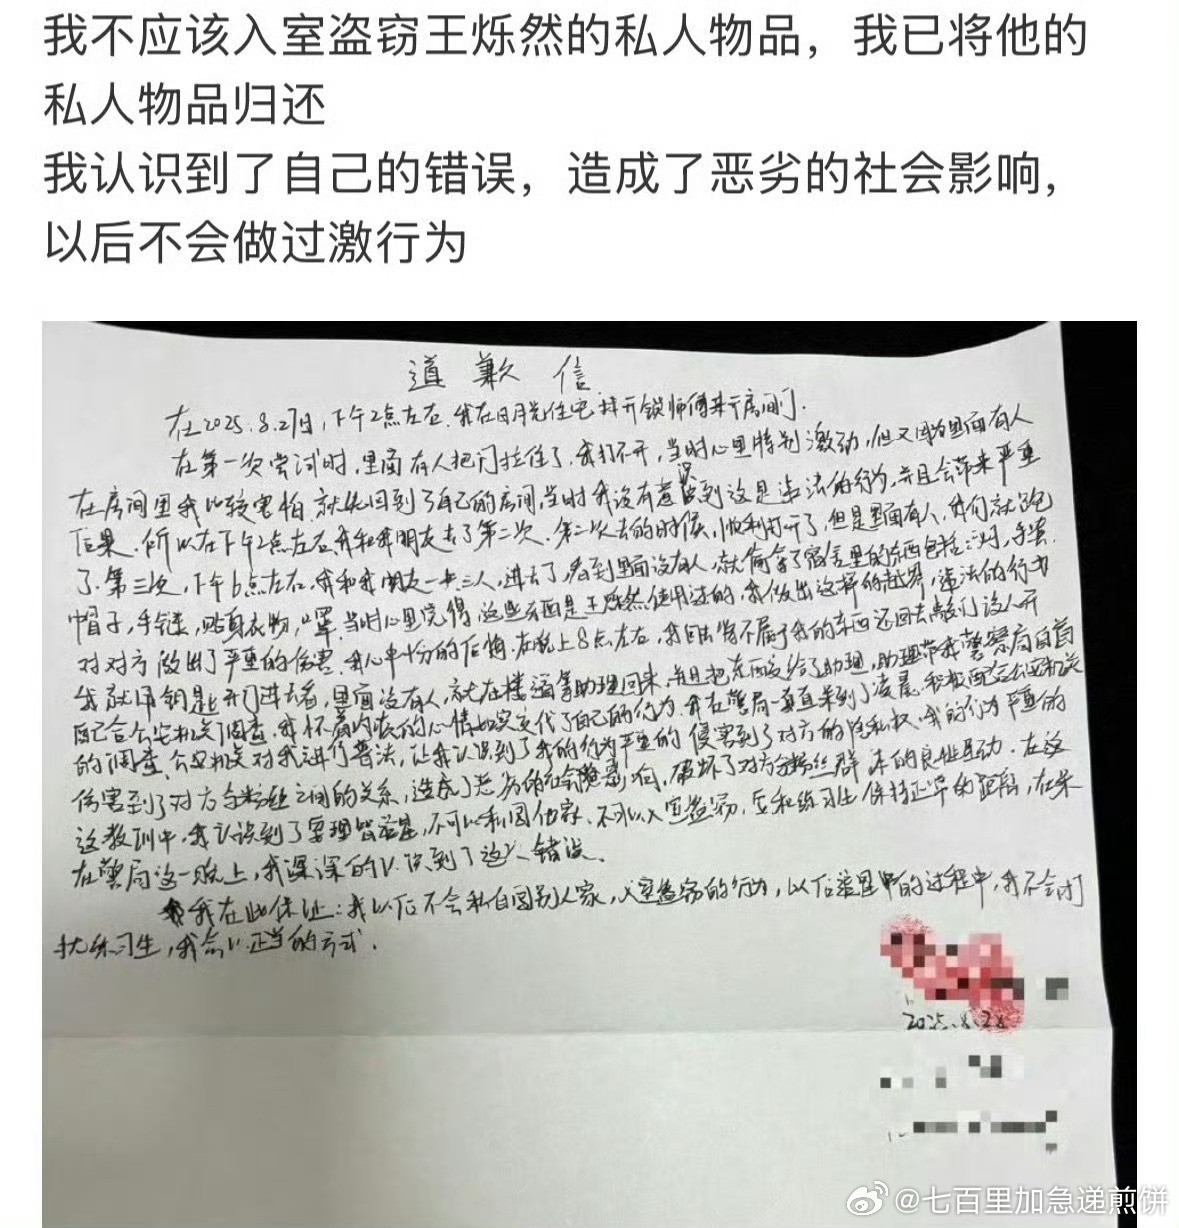 我不应该入室盗窃王烁然的私人物品，我已将他的
私人物品归还
我认识到了自己的错误，造成了恶劣的社会影响，
以后不会做过激行为
道歉信
在2025.8.27日，下午2点左右，我在日月光住宅找开锁师傅来开房间门.
在第一次尝试时，里面有人把门拉住了，我打不开，当时心里特别激动，但又因为里面有人
在房间里我比较害怕，就先回到了自己的房间，当时我没有意识到这是违法的行为，并且会带来严重
后果，所以在下午2点左右我和我朋友去了第二次，第二次去的时候，顺利打开了，但是里面有人，我们就跑
了，第三次，下午6点左右，我和我朋友一共三人，进去了，看到里面没有人，就偷拿了宿舍里的东西包括
帽子，手链，贴身衣物，口罩，当时心里觉得这些东西是王烁然使用过的，我做出这样的越界，违法的行为
对对方做出了严重的伤害，我心中十分的后悔，在晚上8点左右，我回去将不属于我的东西还回去敲门没人开
我就用钥匙开门进去看，里面没有人，就在楼道等助理回来，并且把东西交给了助理，助理带我警察局自首
配合公安机关调查，我怀着内疚的心情如实交代了自己的行为，我在警局一直待到了凌晨，积极配合公安机关
的调查，公安机关对我进行普法，让我认识到了我的行为严重的侵害到了对方的隐私权，我的行为严重的
伤害到了对方与粉丝之间的关系，造成了恶劣的社会影响，破坏了对方与粉丝群体的良性互动，在这
这教训中，我认识到了要理智追星，不可以私闯他家，不可以入室盗窃，应和练习生保持正常的距离，在来
在警局这一晚上，我深深的认识到了这个错误。
我在此保证：我以后不会私自闯别人家，入室盗窃的行为，以后追星中的过程中，我不会打
扰练习生，我会以正当的方式.
2025.8.28
@七百里加急递煎饼